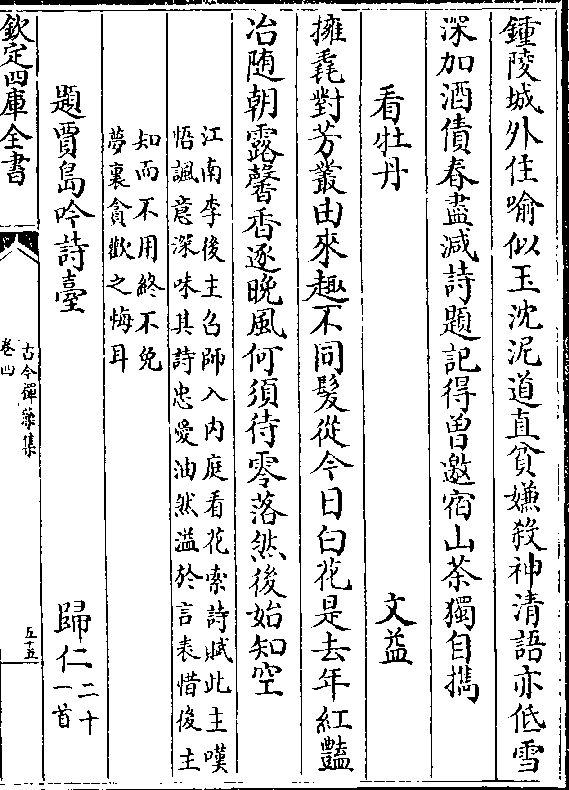 鍾陵城外住喻似玉沈泥道直貧嫌殺神清語亦低雪
深加酒債春盡減詩題記得曽邀宿山茶獨自攜
看牡丹　文益
擁毳對芳叢由來趣不同髮從今日白花是去年紅豔
冶隨朝露馨香逐晚風何須待零落然後始知空
江南李後主召師入内庭看花索詩賦此主嘆
悟諷意深味其詩忠愛油然溢於言表惜後主
知而不用終不免
夢裏貪歡之悔耳
題賈島吟詩臺　歸仁二十一首
欽定四庫全書
古今禪藻集
卷四
五十五